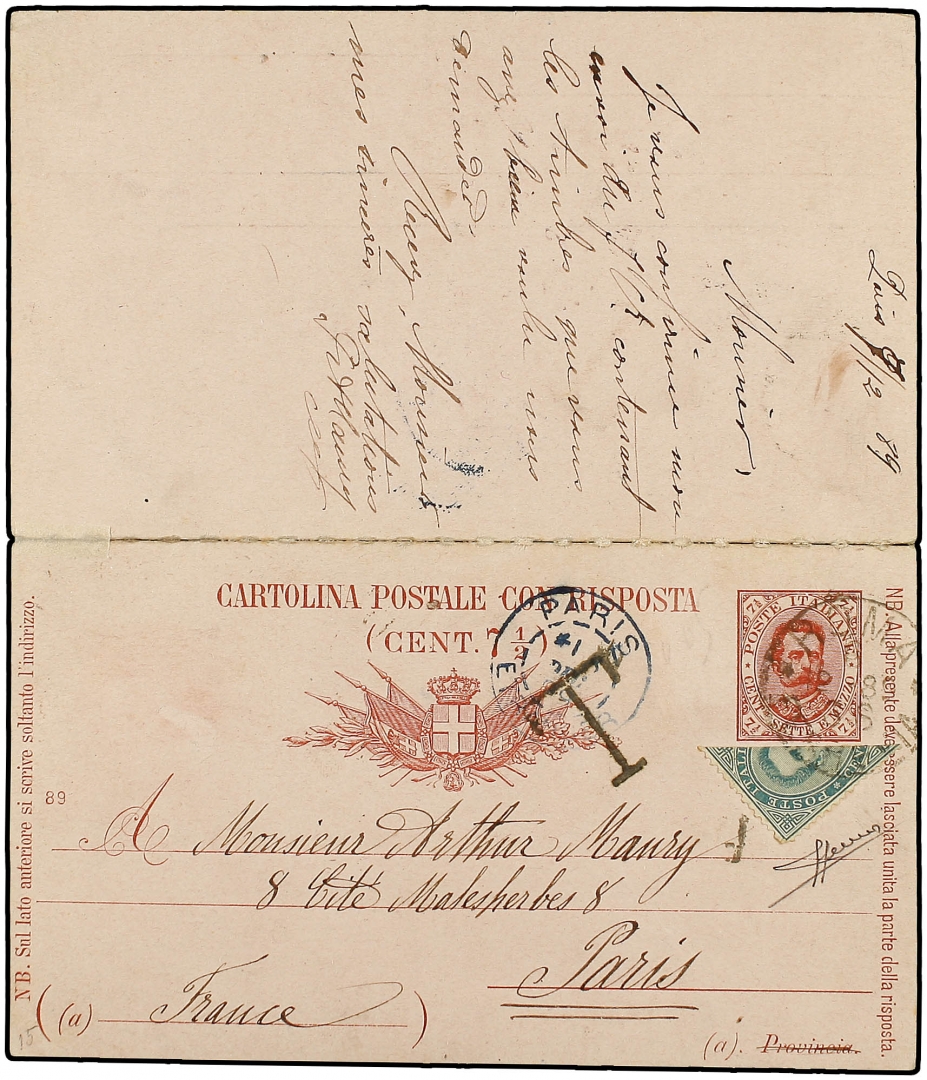 Paris 9/2 89
Monsieur,
Je vous confirme mon
envoi du contenant
les timbres que vous
avez bien voulu nous
demander.
Recevez, Monsieur
mes sincères salutations
CARTOLINA POSTALE CON RISPOSTA
(CENT. 7 ½)
PARIS
T
POSTE ITALIANE
CENT. SETTE E MEZZO
7½
POSTE ITAL
89
A Monsieur Arthur Maury
8 Cité Malesherbes 8
Paris
(a) France
(a). Provincia.
15
NB. Sul lato anteriore si scrive soltanto l'indirizzo.
NB. Alla presente deve essere lasciata unita la parte della risposta.